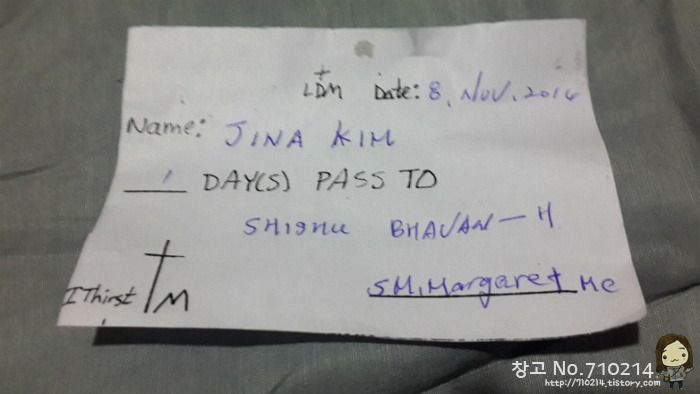 LDM Date: 8, NOV. 2014
Name: JINA KIM
1 DAY(S) PASS TO
SHISHU BHAVAN - H
SM. Margaret MC
I Thirst M
창고 No.710214
http://710214.tistory.com/